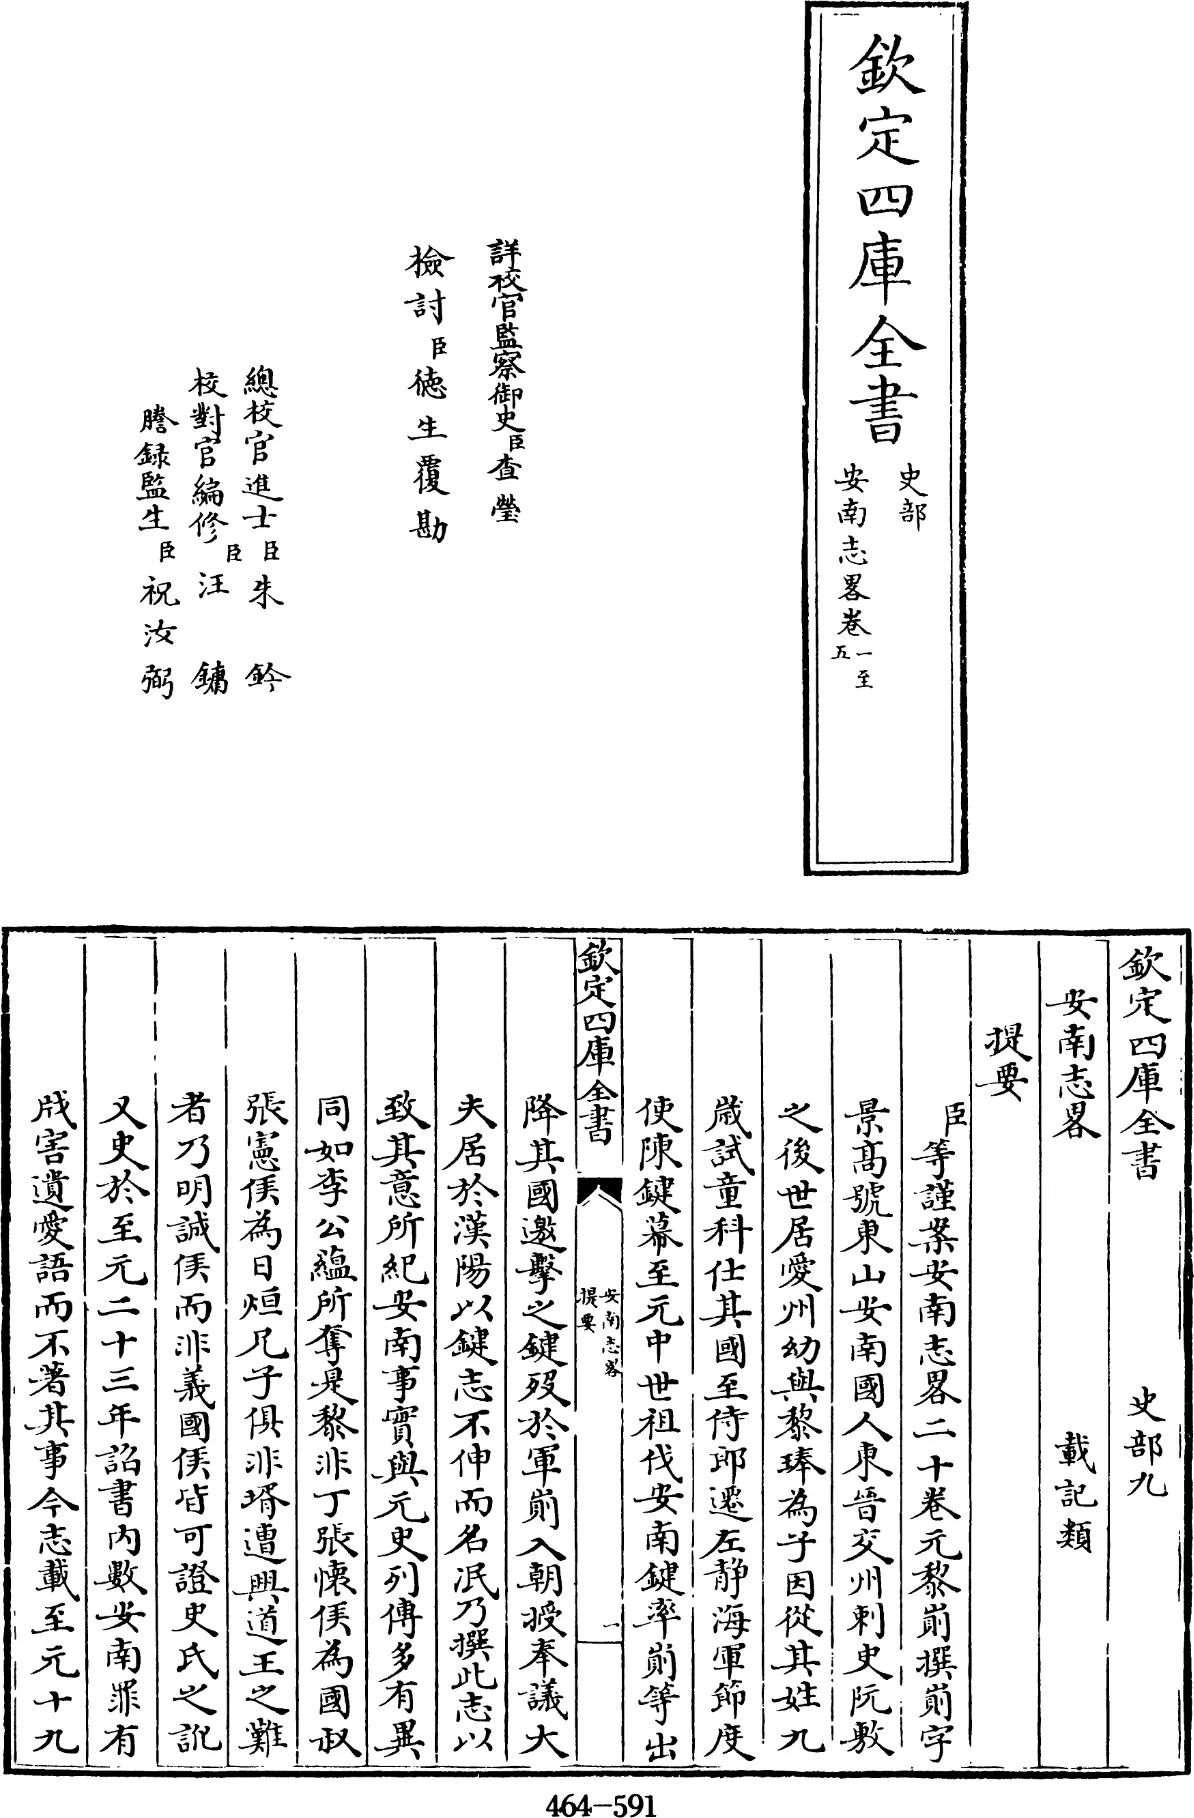 欽定四庫全書
史部
安南志畧卷一至五
詳校官監察御史臣查瑩
檢討臣德生覆勘
總校官進士臣朱鈐
校對官編修臣汪鏞
謄録監生臣祝汝弼
欽定四庫全書 史部九
安南志畧 載記類
提要
臣等謹案安南志畧二十卷元黎崱撰崱字
景高號東山安南國人東晉交州刺史阮敷
之後世居愛州幼與黎琫為子因從其姓九
歳試童科仕其國至侍郎遷左静海軍節度
使陳鍵幕至元中世祖伐安南鍵率崱等出
欽定四庫全書
安南志畧
提要
一
降其國邀擊之鍵歿於軍崱入朝授奉議大
夫居於漢陽以鍵志不伸而名泯乃撰此志以
致其意所紀安南事實與元史列傳多有異
同如李公蘊所奪是黎非丁張懐侯為國叔
張憲侯為日烜凡子俱非壻遭興道王之難
者乃明誠侯而非義國侯皆可證史氏之訛
又史於至元二十三年詔書内數安南罪有
戕害遺愛語而不著其事今志載至元十九
464-591